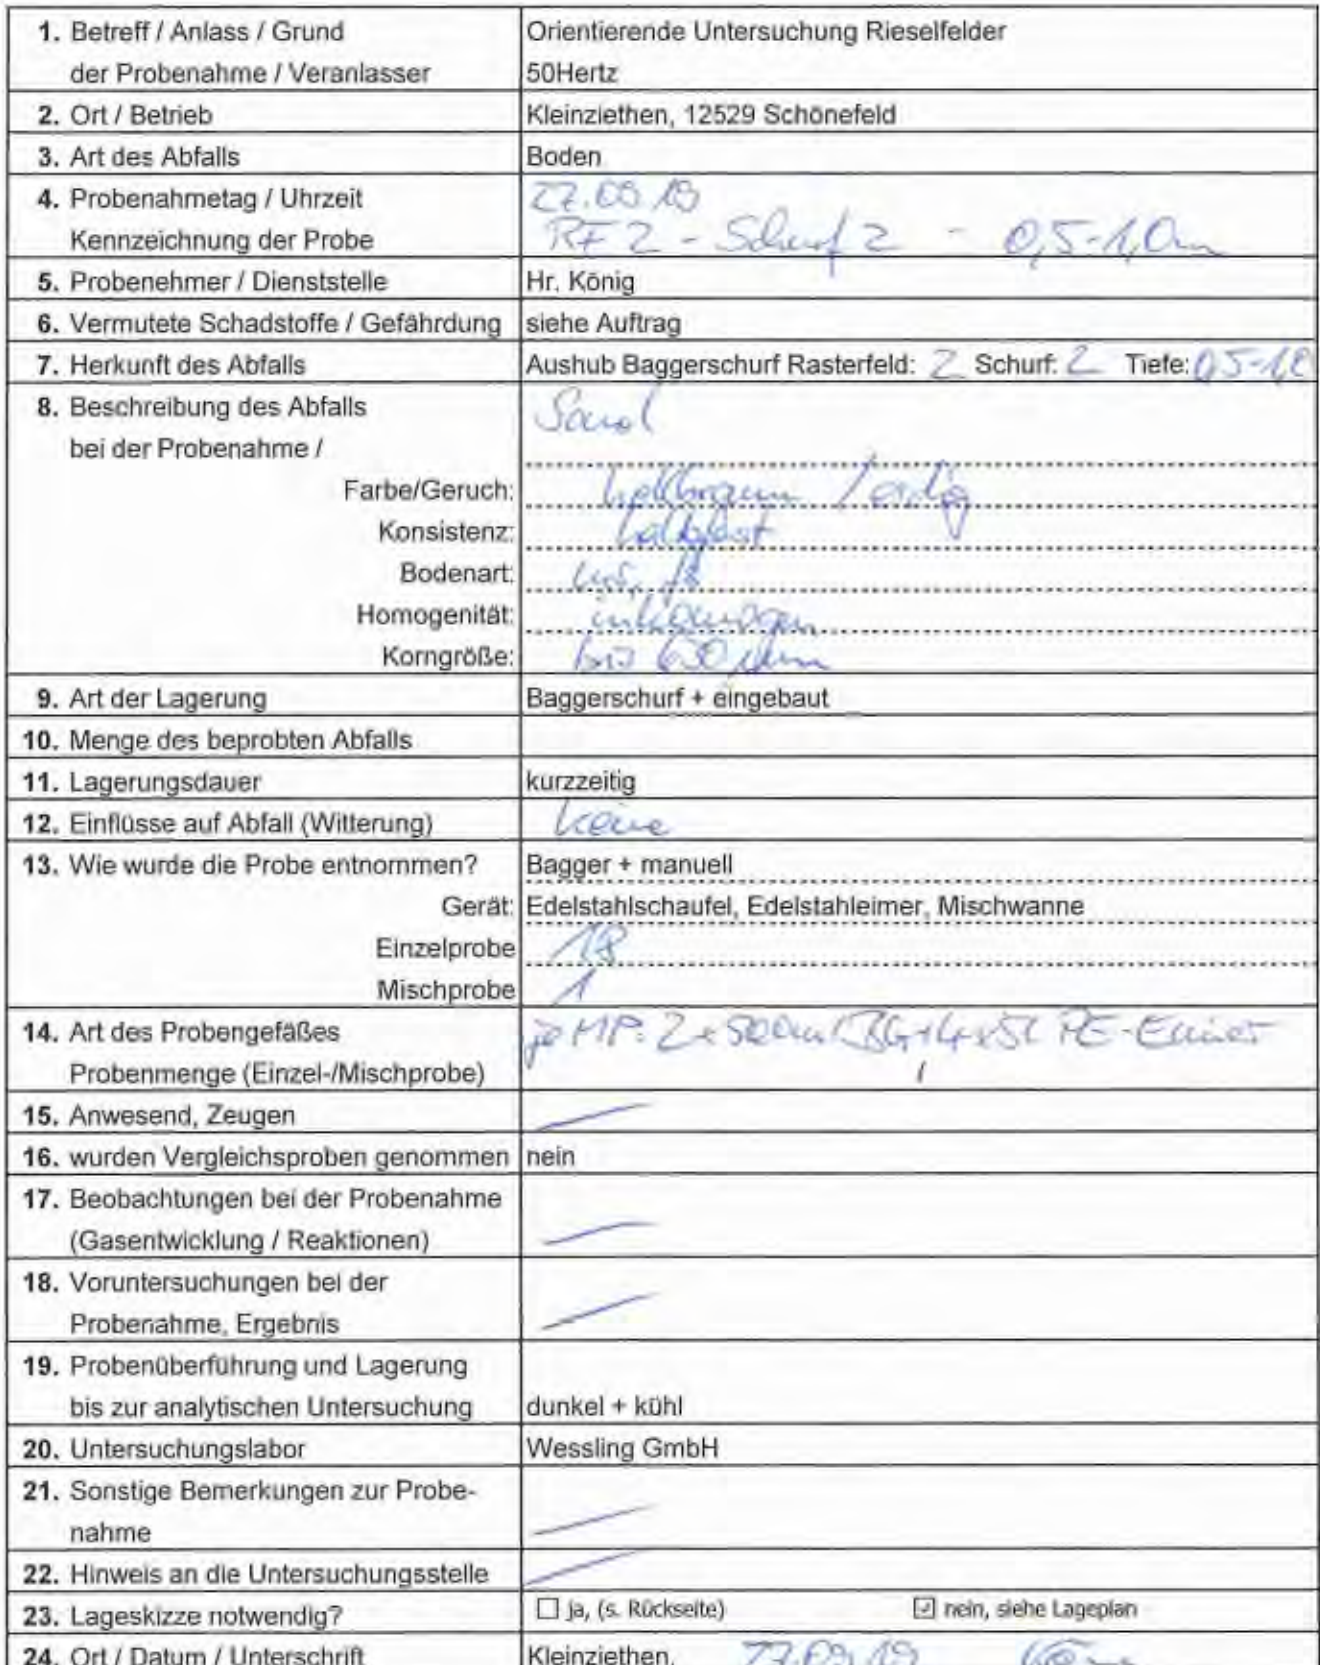 1. Betreff / Anlass / Grund Orientierende Untersuchung Rieselfelder
der Probenahme / Veranlasser 50Hertz
2. Ort / Betrieb Kleinziethen, 12529 Schönefeld
3. Art des Abfalls Boden
4. Probenahmetag / Uhrzeit 27.09.19
Kennzeichnung der Probe RF 2 - Schurf 2 - 0,5-1,0m
5. Probenehmer / Dienststelle Hr. König
6. Vermutete Schadstoffe / Gefährdung siehe Auftrag
7. Herkunft des Abfalls Aushub Baggerschurf Rasterfeld: 2 Schurf: 2 Tiefe: 0,5-1,0
8. Beschreibung des Abfalls Sand
bei der Probenahme /
Farbe/Geruch: hellbraun / erdig
Konsistenz: halbfest
Bodenart:
Homogenität: inhomogen
Korngröße: bis 630 µm
9. Art der Lagerung Baggerschurf + eingebaut
10. Menge des beprobten Abfalls
11. Lagerungsdauer kurzzeitig
12. Einflüsse auf Abfall (Witterung) keine
13. Wie wurde die Probe entnommen? Bagger + manuell
Gerät: Edelstahlschaufel, Edelstahleimer, Mischwanne
Einzelprobe 18
Mischprobe 1
14. Art des Probengefäßes je MP: 2 x 500ml BG + 4 x 5L PE-Eimer
Probenmenge (Einzel-/Mischprobe)
15. Anwesend, Zeugen
16. wurden Vergleichsproben genommen nein
17. Beobachtungen bei der Probenahme
(Gasentwicklung / Reaktionen)
18. Voruntersuchungen bei der
Probenahme, Ergebnis
19. Probenüberführung und Lagerung
bis zur analytischen Untersuchung dunkel + kühl
20. Untersuchungslabor Wessling GmbH
21. Sonstige Bemerkungen zur Probe-
nahme
22. Hinweis an die Untersuchungsstelle
23. Lageskizze notwendig? ☐ ja, (s. Rückseite) ☑ nein, siehe Lageplan
24. Ort / Datum / Unterschrift Kleinziethen, 27.09.19